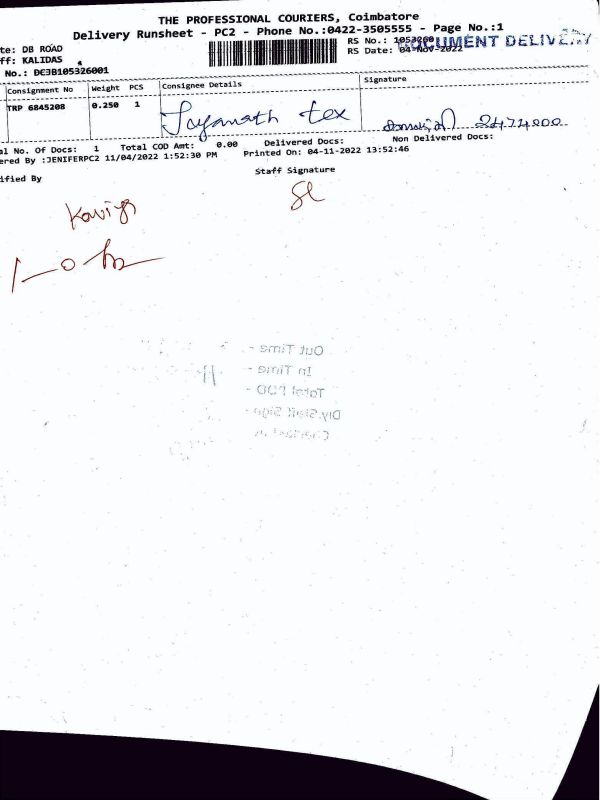 THE PROFESSIONAL COURIERS, Coimbatore
Delivery Runsheet - PC2 - Phone No.:0422-3505555 - Page No.:1
te: DB ROAD
RS No.:
DOCUMENT DELIVERY
ff: KALIDAS
RS Date: 04-Nov-2022
No.: DC3B105326001
Consignment No Weight PCS Consignee Details Signature
TRP 6845208 0.250 1 tex
al No. Of Docs: 1 Total COD Amt: 0.00 Delivered Docs: Non Delivered Docs:
ered By :JENIFERPC2 11/04/2022 1:52:30 PM Printed On: 04-11-2022 13:52:46
ified By Staff Signature
Out Time -
In Time -
Total POD -
Dly.Staff Sign -